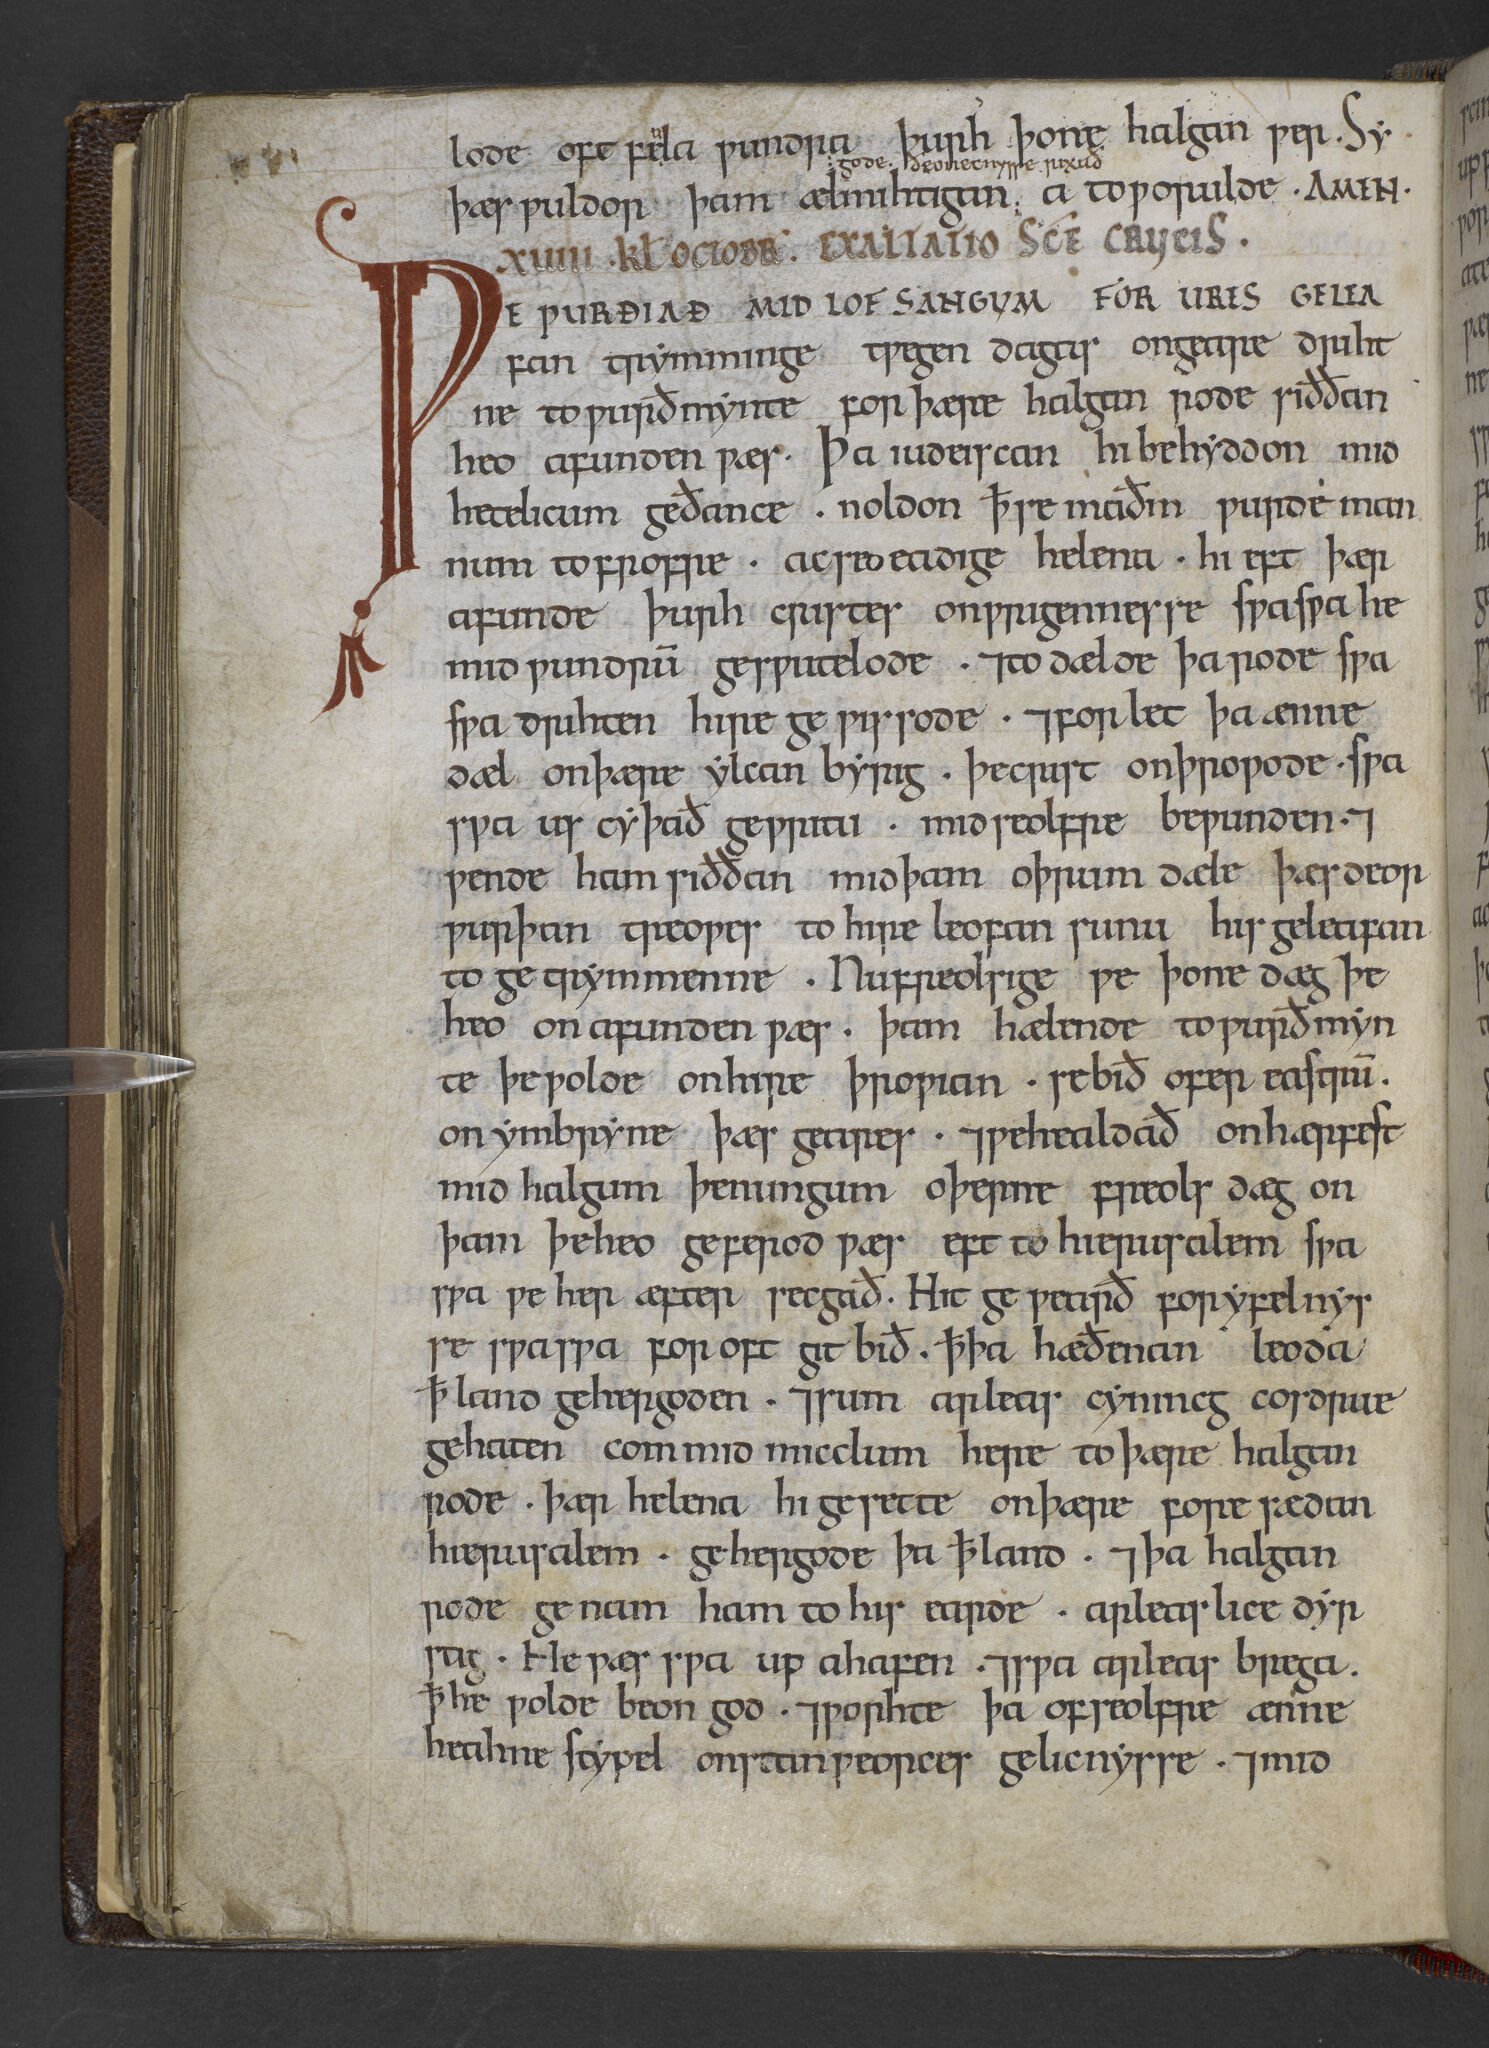 lode oft fęla ƿundra þurh þone halgan ƿer. Sy
gode. ðeonecnysse rixað
þæs ƿuldor þam ælmihtigan. a toƿorulde. AMEN.
XVIII. kł OCTOBR̄. EXALTATIO SC̄E CRUCIS.
ǷE ǷURÐIAÐ MID LOFSANGUM FOR URES GELEA
fan trymminge tƿegen dagas ongeare driht
ne toƿurðmynte for þære halgan rode siððan
heo afunden ƿæs. Þa iudeiscan hi behyddon mid
hetelicum geðance. noldon ꝥ se maðm ƿurde man
num tofrofre. ac seo eadige helena. hi eft þær
afunde þurh cristes onƿrigennesse sƿa sƿa he
mid ƿundrū gesƿutelode. ⁊to dælde þa rode sƿa
sƿa drihten hire ge ƿissode. ⁊forlet þa ænne
dæl on þære ylcan byrig. þe crist on þroƿode. sƿa
sƿa us cyþað geƿritu. mid seolfre beƿunden. ⁊
ƿende ham siððan mid þam oþrum dæle þæs deor
ƿurþan treoƿes to hire leofan sunu his geleafan
to ge trymmenne. Nu freolsige ƿe þone dæg þe
heo on afunden ƿæs. þam hælende toƿurðmyn
te þe ƿolde on hire þroƿian. se bið ofer eastrū.
on ymbryne þæs geares. ⁊ƿe healdað on hærfest
mid halgum þenungum oþerne freols dæg on
þam þe heo geferod ƿæs eft to hierusalem sƿa
sƿa ƿe her æfter secgað. Hit ge ƿearð for yfelnys
se sƿa sƿa for oft git bið. ꝥ þa hæðenan leoda
ꝥ land gehergoden. ⁊sum arleas cynincg cosdrue
gehaten com mid micclum here to þære halgan
rode. þær helena hi gesette on þære fore sædan
hierusalem. gehergode þa ꝥ land. ⁊ þa halgan
rode ge nam ham to his earde. arleaslice dyr
stig. He ƿæs sƿa up ahafen. ⁊sƿa arleas brega.
ꝥ he ƿolde beon god. ⁊ƿorhte þa of seolfre ænne
heahne stypel on stanƿeorces gelicnysse. ⁊mid